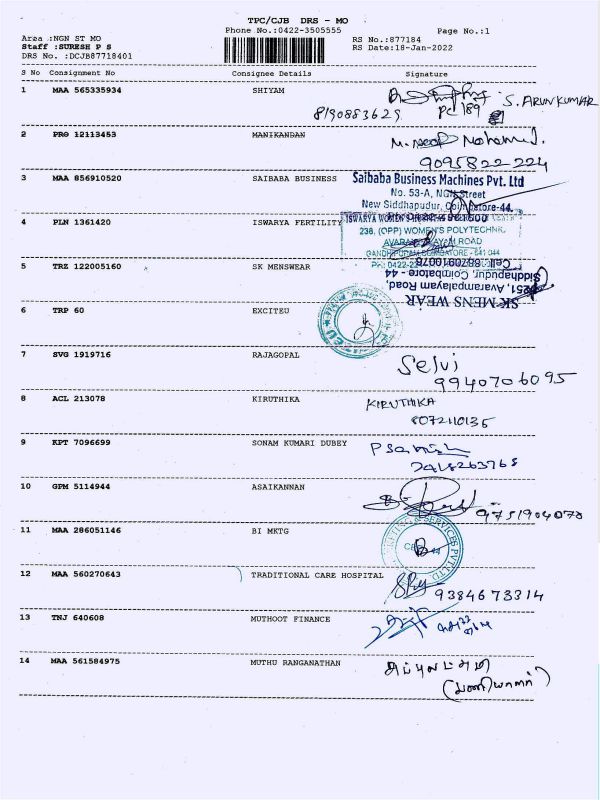 TPC/CJB DRS - MO
Phone No.:0422-3505555
Page No.:1
Area :NGN ST MO
RS No.:877184
Staff :SURESH P S
RS Date:18-Jan-2022
DRS No. :DCJB87718401
S No Consignment No Consignee Details Signature
1 MAA 565335934 SHIYAM
S. ARUNKUMAR
8190883629
2 PRG 12113453 MANIKANDAN
9095822224
3 MAA 856910520 SAIBABA BUSINESS
Saibaba Business Machines Pvt. Ltd
No. 53-A, NGN Street
New Siddhapudur, Coimbatore-44.
4 PLN 1361420 ISWARYA FERTILITY
ISWARYA WOMEN'S
236, (OPP) WOMEN'S POLYTECHNIC
AVARAMPALAYAM ROAD
GANDHIPURAM COIMBATORE - 641 044
5 TRZ 122005160 SK MENSWEAR
SK MENS WEAR
Avarampalayam Road,
Siddhapudur, Coimbatore - 44
6 TRP 60 EXCITEU
7 SVG 1919716 RAJAGOPAL
Selvi
9940706095
8 ACL 213078 KIRUTHIKA
KIRUTHIKA
8072110135
9 KPT 7096699 SONAM KUMARI DUBEY
10 GPM 5114944 ASAIKANNAN
9751904070
11 MAA 286051146 BI MKTG
& SERVICES PVT LTD
12 MAA 560270643 TRADITIONAL CARE HOSPITAL
9384673314
13 TNJ 640608 MUTHOOT FINANCE
14 MAA 561584975 MUTHU RANGANATHAN